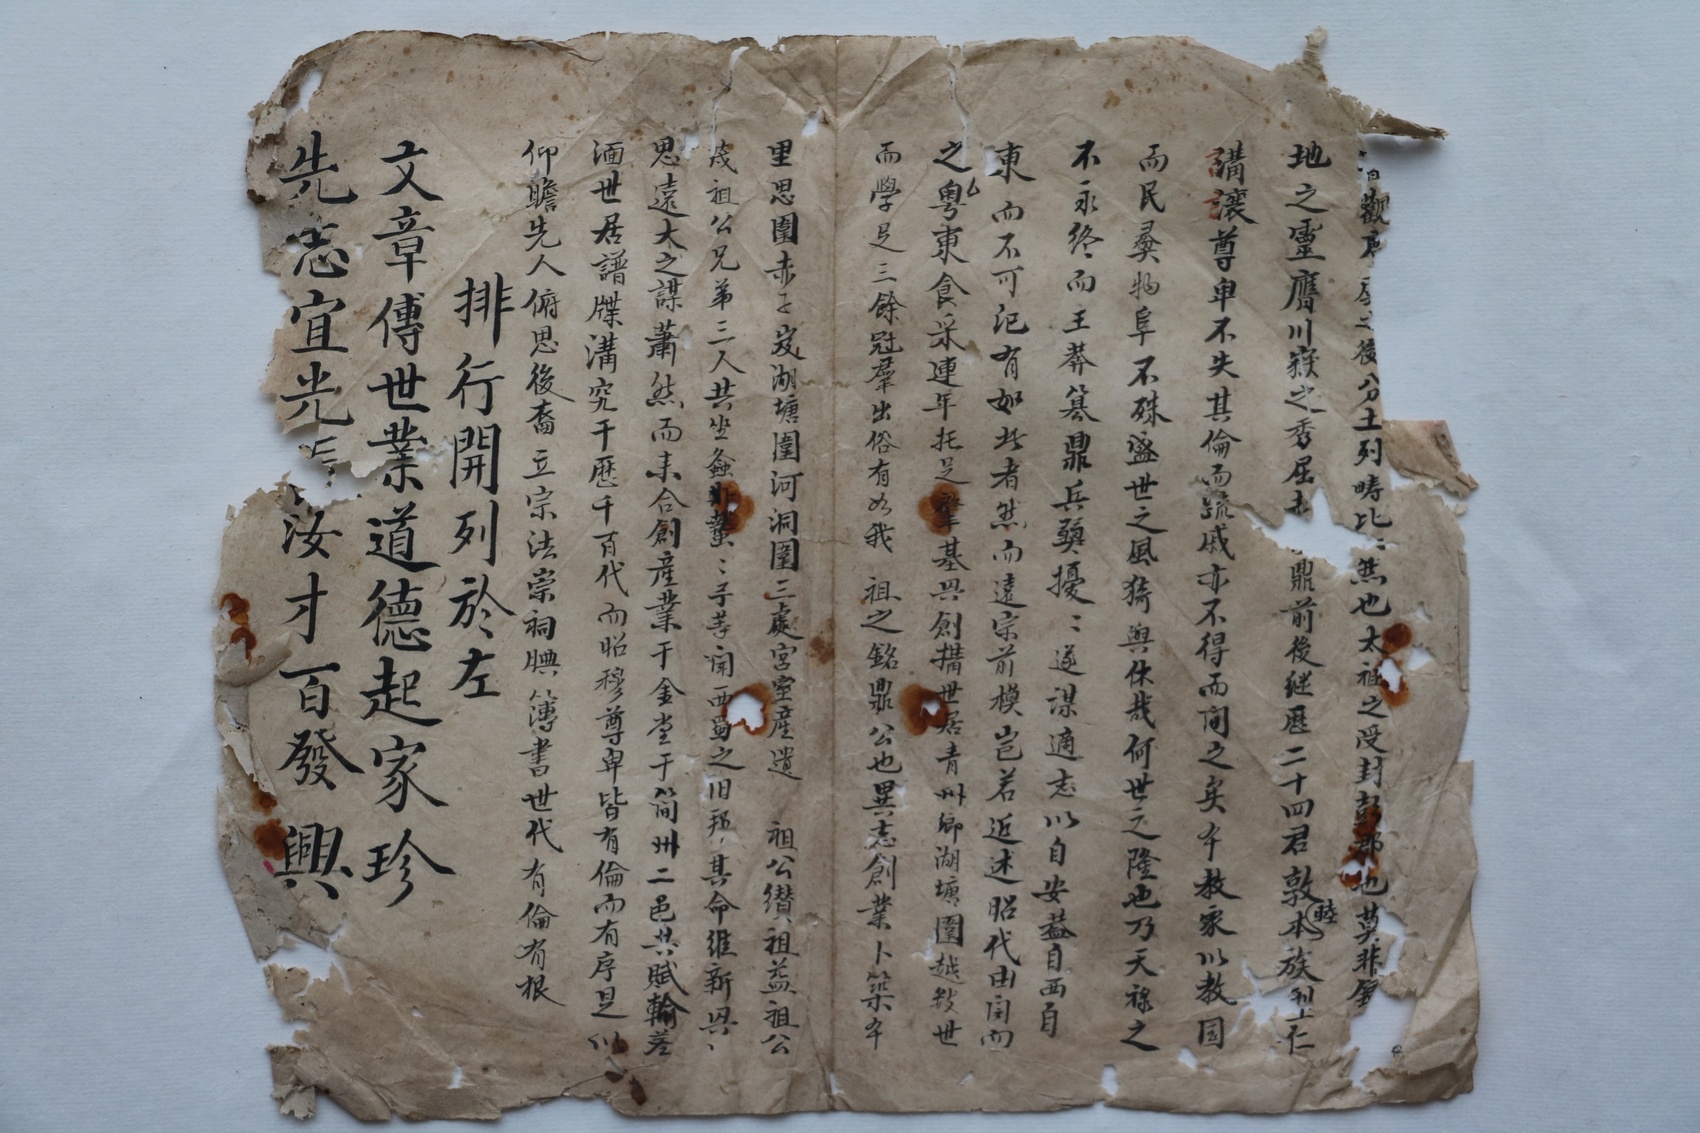 觀 之後分土列疇比 然也太祖之受封彭郡也莫非
地之靈鷹川嶽之秀屈 鼎前後継歷二十四君敦本睦族型仁
講讓尊卑不失其倫而疏戚亦不得而间之矣夲教家以教囯
而民彝物阜不殊盛世之風猗與休哉何世之隆也乃天祿之
不永終而王莽篡鼎兵燹擾〻遂谋適志以自安葢自西自
東而不可记有如此者然而遠宗前模岂若近述昭代由闽而
之粤東食采連年托足肇基興創搆世居青州鄉湖塘圍越数世
而學足三餘冠羣出俗有如我 祖之銘鼎公也異志創業卜築夲
里思圍赤子岌湖塘圍河洞圍三處宮室產遗 祖公缵祖葢祖公
茂祖公兄弟三人共坐螽斯蟄〻子等闻西蜀之旧邦其命维新兴
思遠大之謀蕭然而来合創産業于金堂于简州二邑共赋輸差
湎世居譜牒溝究于歷千百代而昭穆尊卑皆有倫而有序是以
仰瞻先人俯思後裔立宗法崇祠腆簿書世代有倫有根
排行開列於左
文章傳世業道德起家珍
先志宜光 汝才百發興